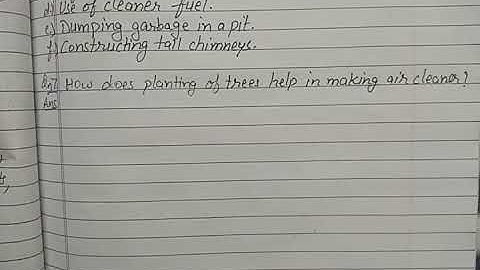 d) Use of cleaner fuel.
e) Dumping garbage in a pit.
f) Constructing tall chimneys.
Qn7 How does planting of trees help in making air cleaner?
Ans